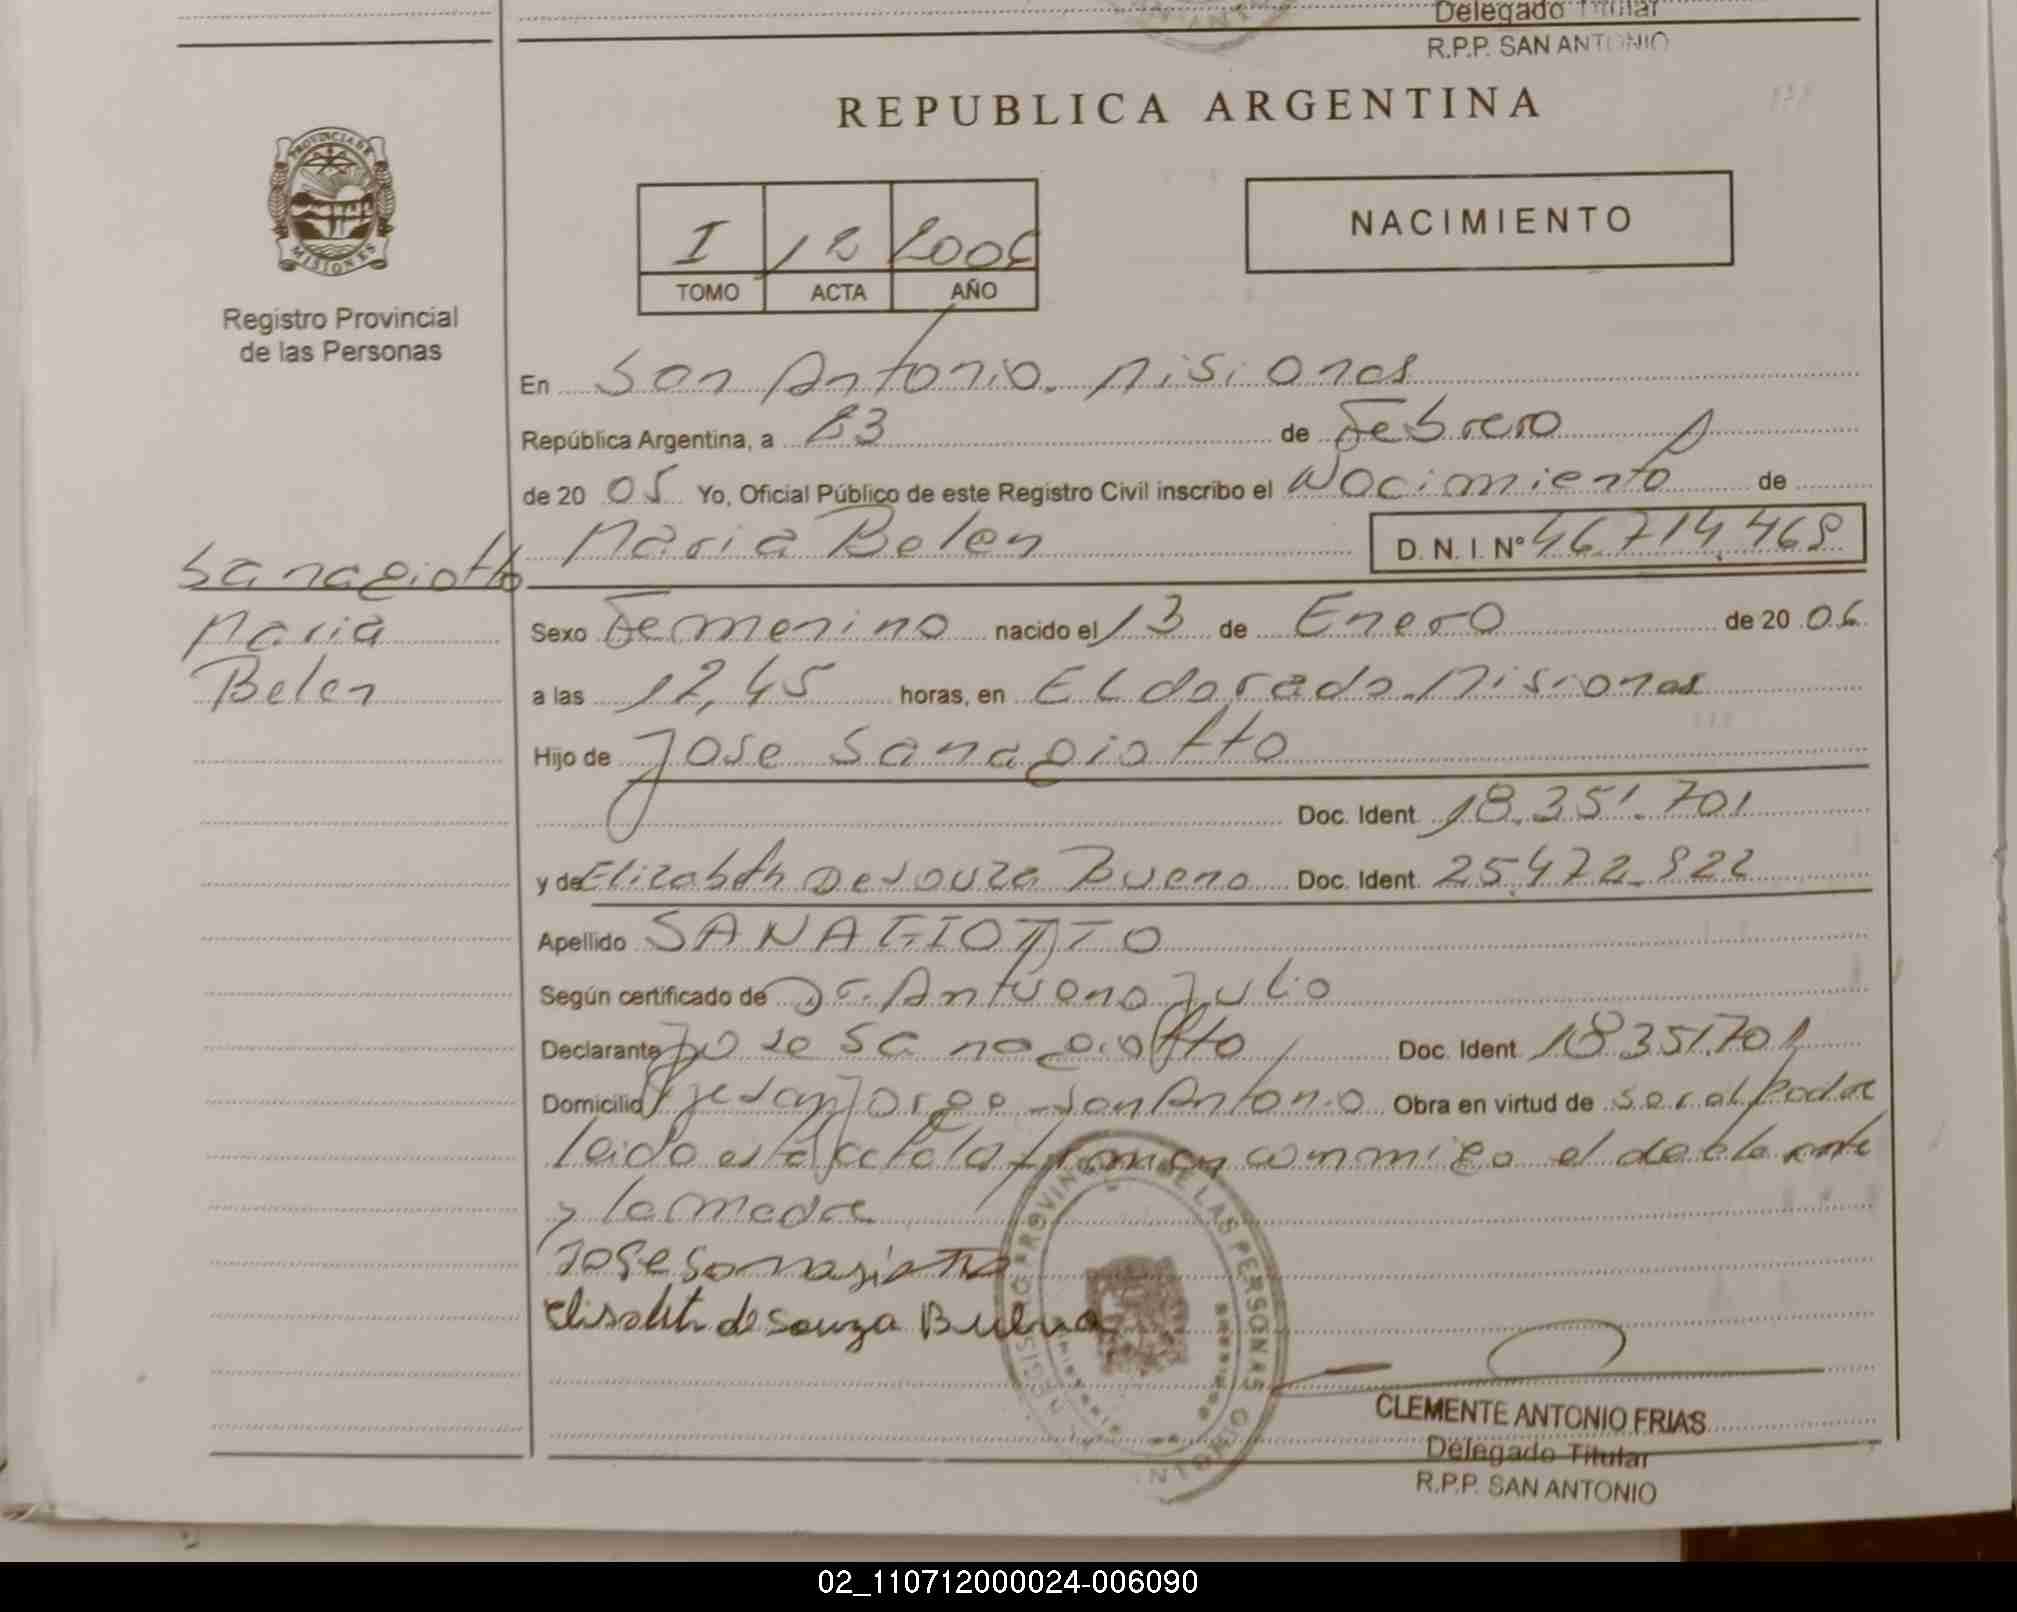 Delegado Titular
R.P.P. SAN ANTONIO
REPUBLICA ARGENTINA
PROVINCIA DE
MISIONES
Registro Provincial
de las Personas
I 12 2006
TOMO ACTA AÑO
NACIMIENTO
En San Antonio. Misiones
República Argentina, a 23 de Febrero
de 20 05 Yo, Oficial Público de este Registro Civil inscribo el Nacimiento de
Maria Belen D. N. I. Nº 46.714.468
Sanagiotto
Maria
Belen
Sexo Femenino nacido el 13 de Enero de 20 06
a las 12,45 horas, en Eldorado. Misiones
Hijo de Jose Sanagiotto
Doc. Ident 18.351.701
y de Elizabeth De Souza Bueno Doc. Ident. 25.472.822
Apellido SANAGIOTTO
Según certificado de Dr. Antueno Julio
Declarante Jose Sanagiotto Doc. Ident 18351.701
Domicilio San Jorge San Antonio Obra en virtud de ser al Padre
leido esta acta la firman conmigo el declarante
y la madre
Jose Sanagiotto
Elisabeth de Souza Bueno
PROVINCIAL DE LAS PERSONAS
CLEMENTE ANTONIO FRIAS
Delegado Titular
R.P.P. SAN ANTONIO
02_110712000024-006090